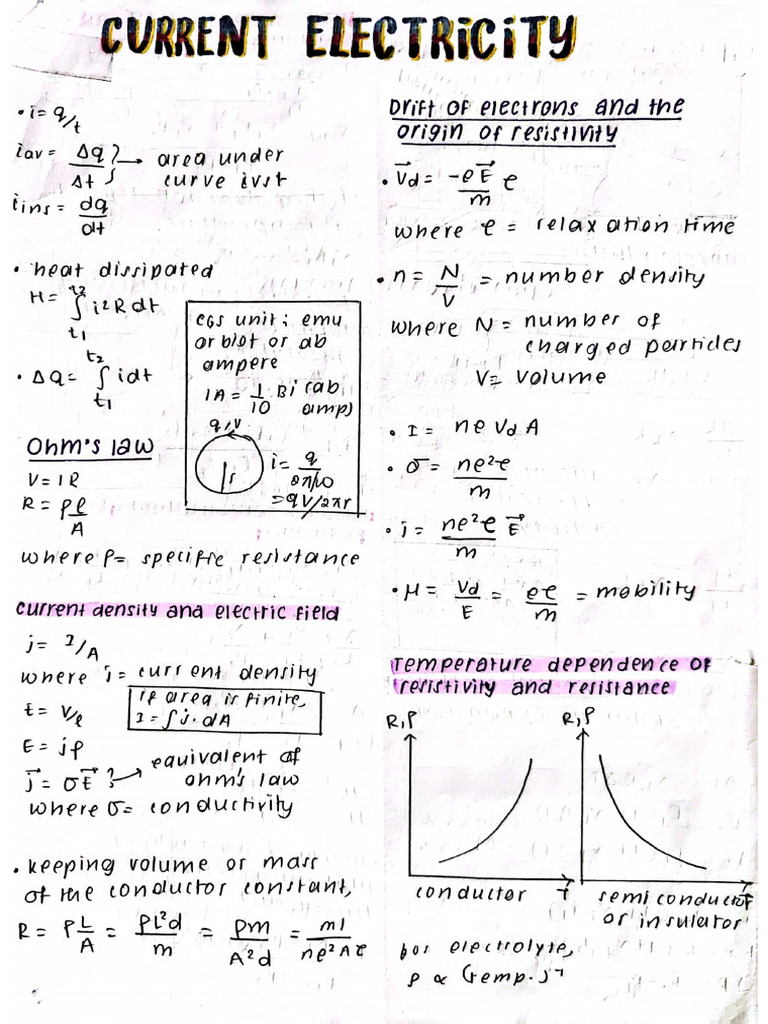 CURRENT ELECTRICITY
• i = q/t
iav = Δq/Δt } → area under
curve ivst
iins = dq/dt
• heat dissipated
H = ∫ i²R dt
t1
• ΔQ = ∫ idt
t2
t1
cgs unit; emu
or biot or ab
ampere
1A = 1/10 Bi (ab
amp)
q, v
r
i = q
= qV/2πr
Ohm's law
V = IR
R = ρℓ/A
where ρ = specific resistance
current density and electric field
j = I/A
where j = current density
if area is finite,
I = ∫ j · dA
E = V/ℓ
E = jρ
j⃗ = σE⃗ } → equivalent of
ohm's law
where σ = conductivity
• keeping volume or mass
of the conductor constant,
R = ρ L/A = ρL²d/m = ρm/A²d = ml/ne²Aτ
Drift of electrons and the
origin of resistivity
• V⃗d = -eE⃗/m τ
where τ = relaxation time
• n = N/V = number density
where N = number of
charged particles
V = volume
• I = ne Vd A
• σ = ne²τ/m
• j = ne²τ/m E⃗
• μ = Vd/E = eτ/m = mobility
Temperature dependence of
resistivity and resistance
R, ρ
R, ρ
conductor T
semiconductor T
or insulator
for electrolyte,
ρ ∝ (Temp.)⁻¹